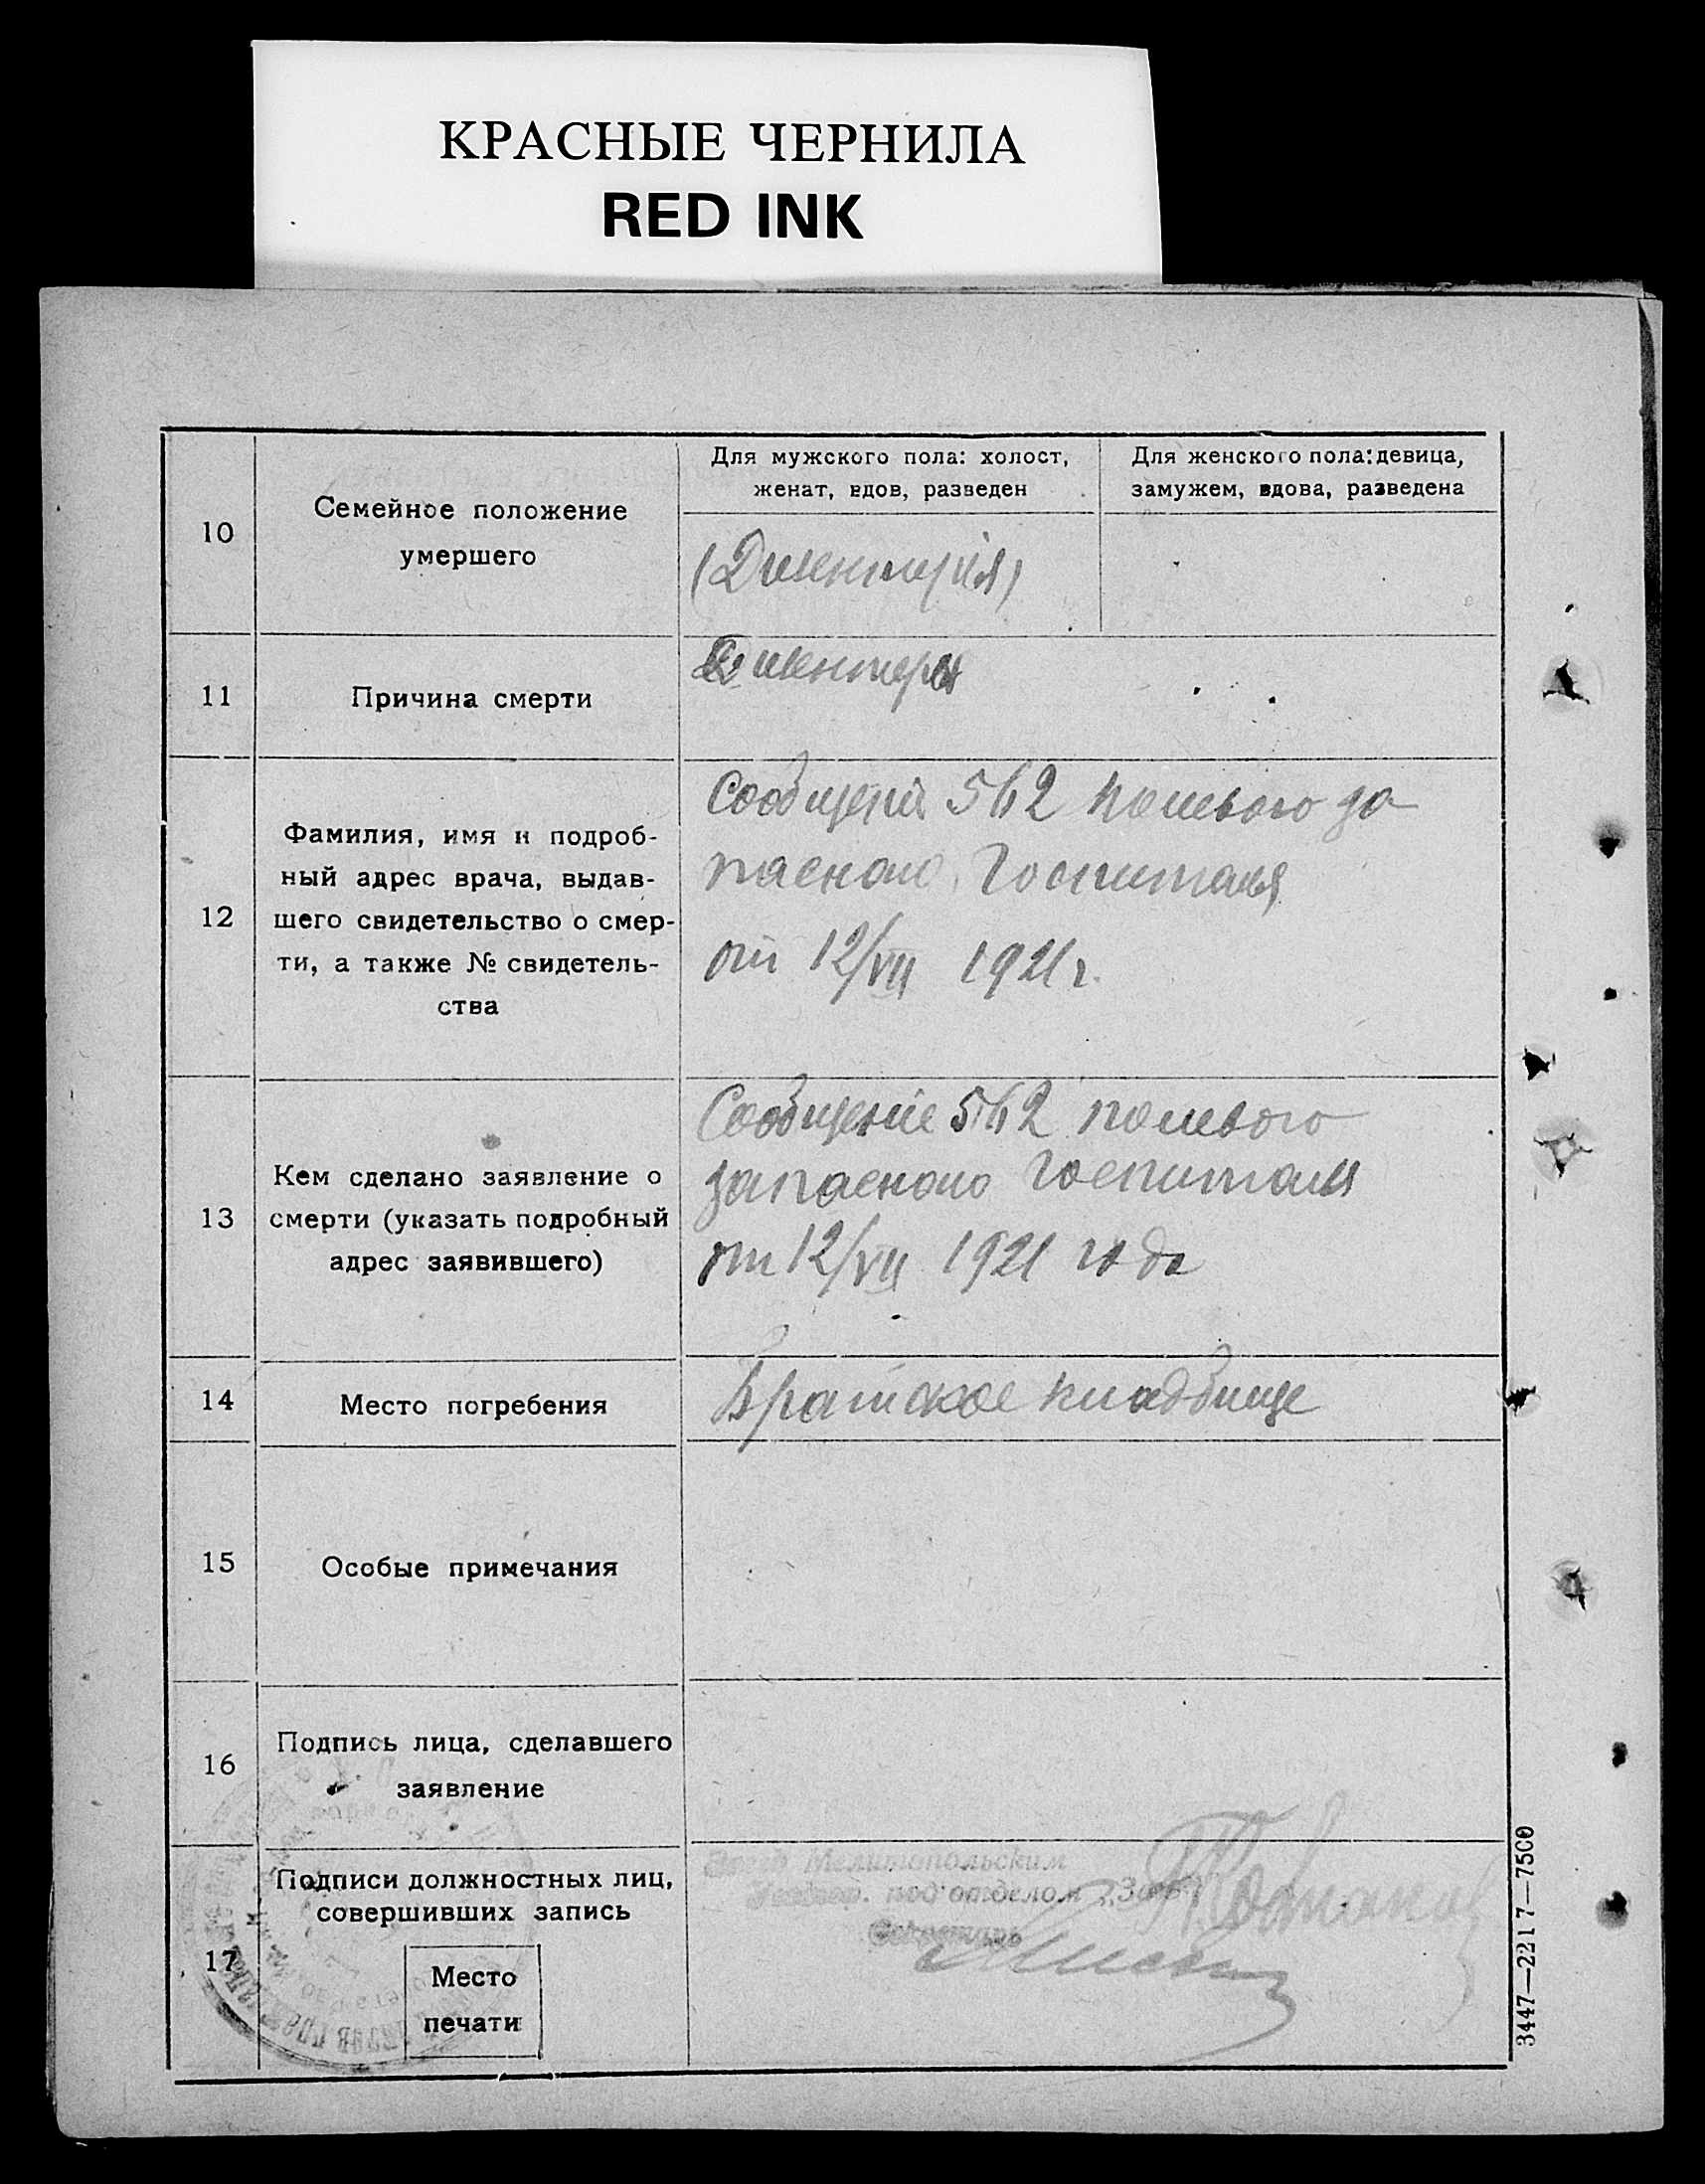 КРАСНЫЕ ЧЕРНИЛА
RED INK
10
Семейное положение
умершего
Для мужского пола: холост,
женат, вдов, разведен
Для женского пола: девица,
замужем, вдова, разведена
(Дизентерія)
11
Причина смерти
Дизентерія
12
Фамилия, имя и подроб-
ный адрес врача, выдав-
шего свидетельство о смер-
ти, а также № свидетель-
ства
Сообщенія 562 полевого за
пасного Госпиталя
от 12/VII 1921 г.
13
Кем сделано заявление о
смерти (указать подробный
адрес заявившего)
Сообщеніе 562 полевого
запасного Госпиталя
от 12/VII 1921 года
14
Место погребения
Братское кладбище
15
Особые примечания
16
Подпись лица, сделавшего
заявление
17
Подписи должностных лиц,
совершивших запись
Место
печати
Мелитопольским
под'отделом
Секретарь
3447—2217—7500